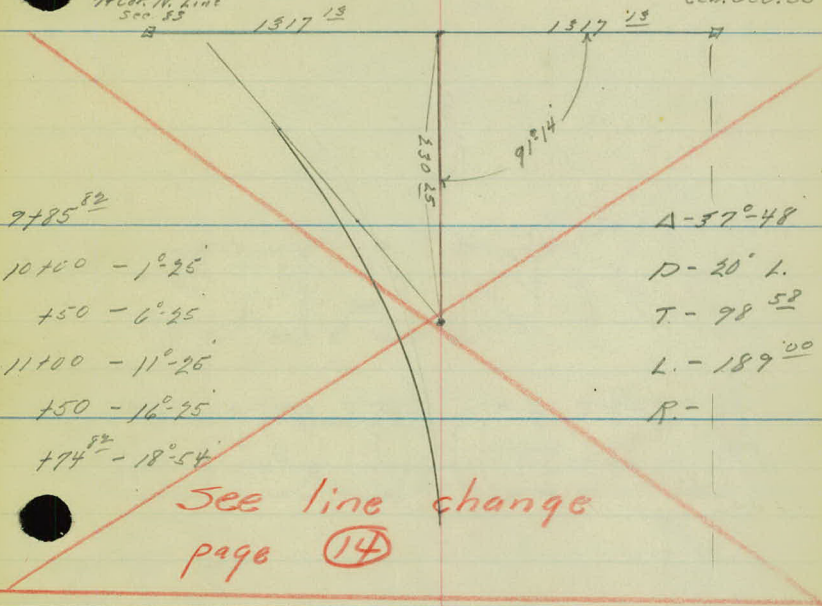 N. Line
Sec. 33
1317 13
1317 13
91°-14'
230 25
9+85 82
10+00 - 1°-25'
+50 - 6°-25
11+00 - 11°-25
+50 - 16°-25
+74 82 - 18°-54'
Δ - 37°-48
D - 20° L.
T. - 98 58
L. - 189.00
R. -
See line change
page 14